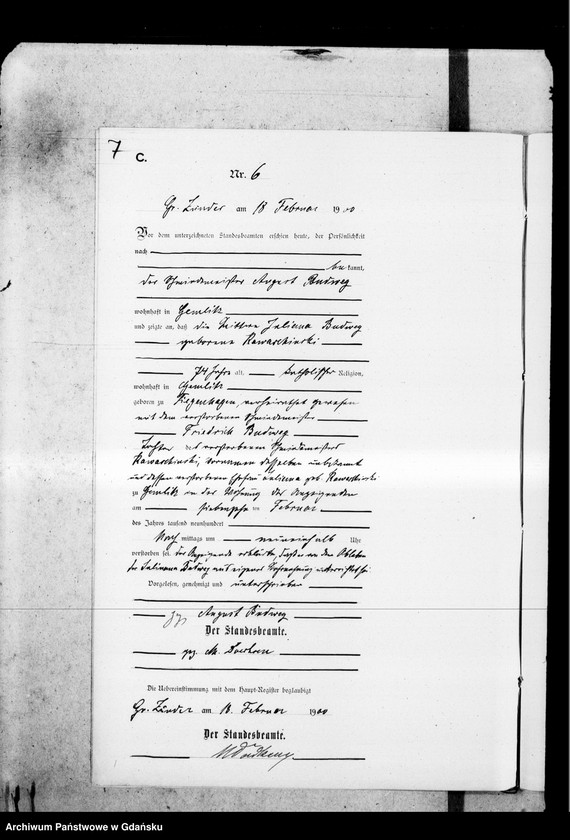 7
C.
Nr. 6
Gr. Zünder am 18 Februar 1900
Vor dem unterzeichneten Standesbeamten erschien heute, der Persönlichkeit
nach
bekannt,
der Schmiedemeister August Budweg
wohnhaft in Gemlitz
und zeigte an, daß die Wittwe Juliana Budweg
geborene Kawaschinski
74 Jahre alt, katholischer Religion,
wohnhaft in Gemlitz
geboren zu Tiegenhagen, verheirathet gewesen
mit dem verstorbenen Schmiedemeister
Friedrich Budweg
Tochter des verstorbenen Schmiedemeisters
Kawaschinski, Vornamen desselben unbekannt
und dessen verstorbene Ehefrau geb. Kawaschinski
zu Gemlitz in der Wohnung des Anzeigenden
am siebenzehn ten Februar
des Jahres tausend neunhundert
Nachmittags um neuneinhalb Uhr
verstorben sei. Der Anzeigende erklärte, daß er von dem Ableben
der Juliana Budweg aus eigener Wissenschaft unterrichtet sei
Vorgelesen, genehmigt und unterschrieben
gez. August Budweg
Der Standesbeamte.
gez. M.
Die Uebereinstimmung mit dem Haupt-Register beglaubigt
Gr. Zünder am 18. Februar 1900
Der Standesbeamte.
Archiwum Państwowe w Gdańsku